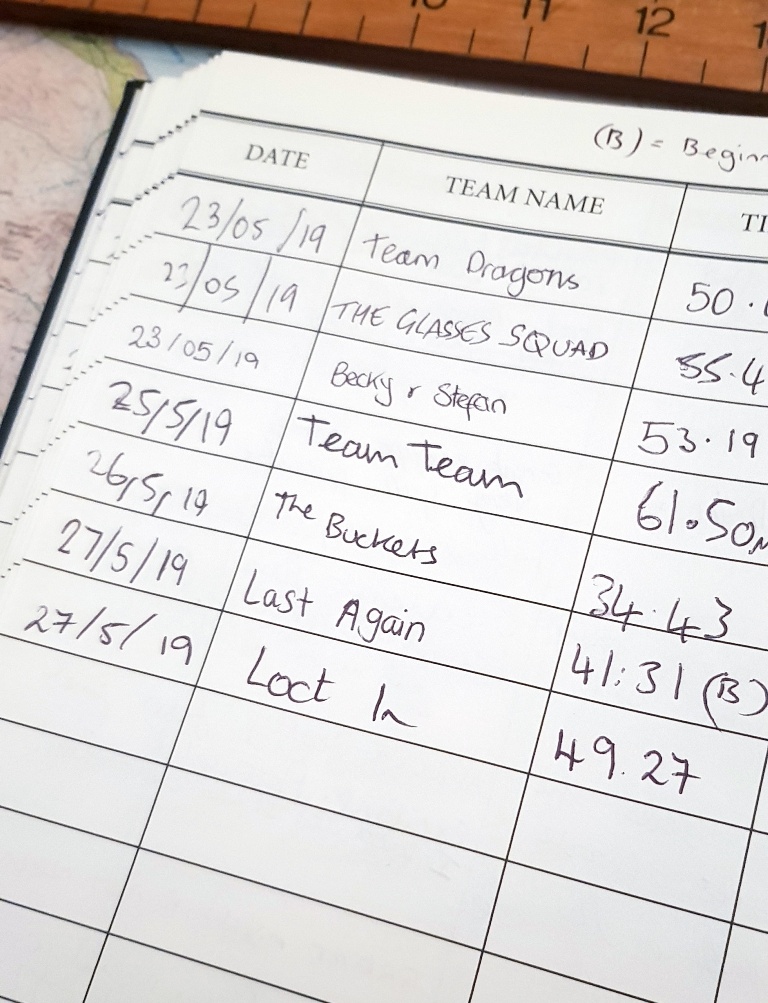 10 11 12
(B) = Begin
DATE TEAM NAME
23/05/19 Team Dragons 50.
23/05/19 THE GLASSES SQUAD 55.4
23/05/19 Becky & Stefan 53.19
25/5/19 Team Team 61.50
26/5/19 The Buckets 34.43
27/5/19 Last Again 41:31 (B)
27/5/19 Loct In 49.27